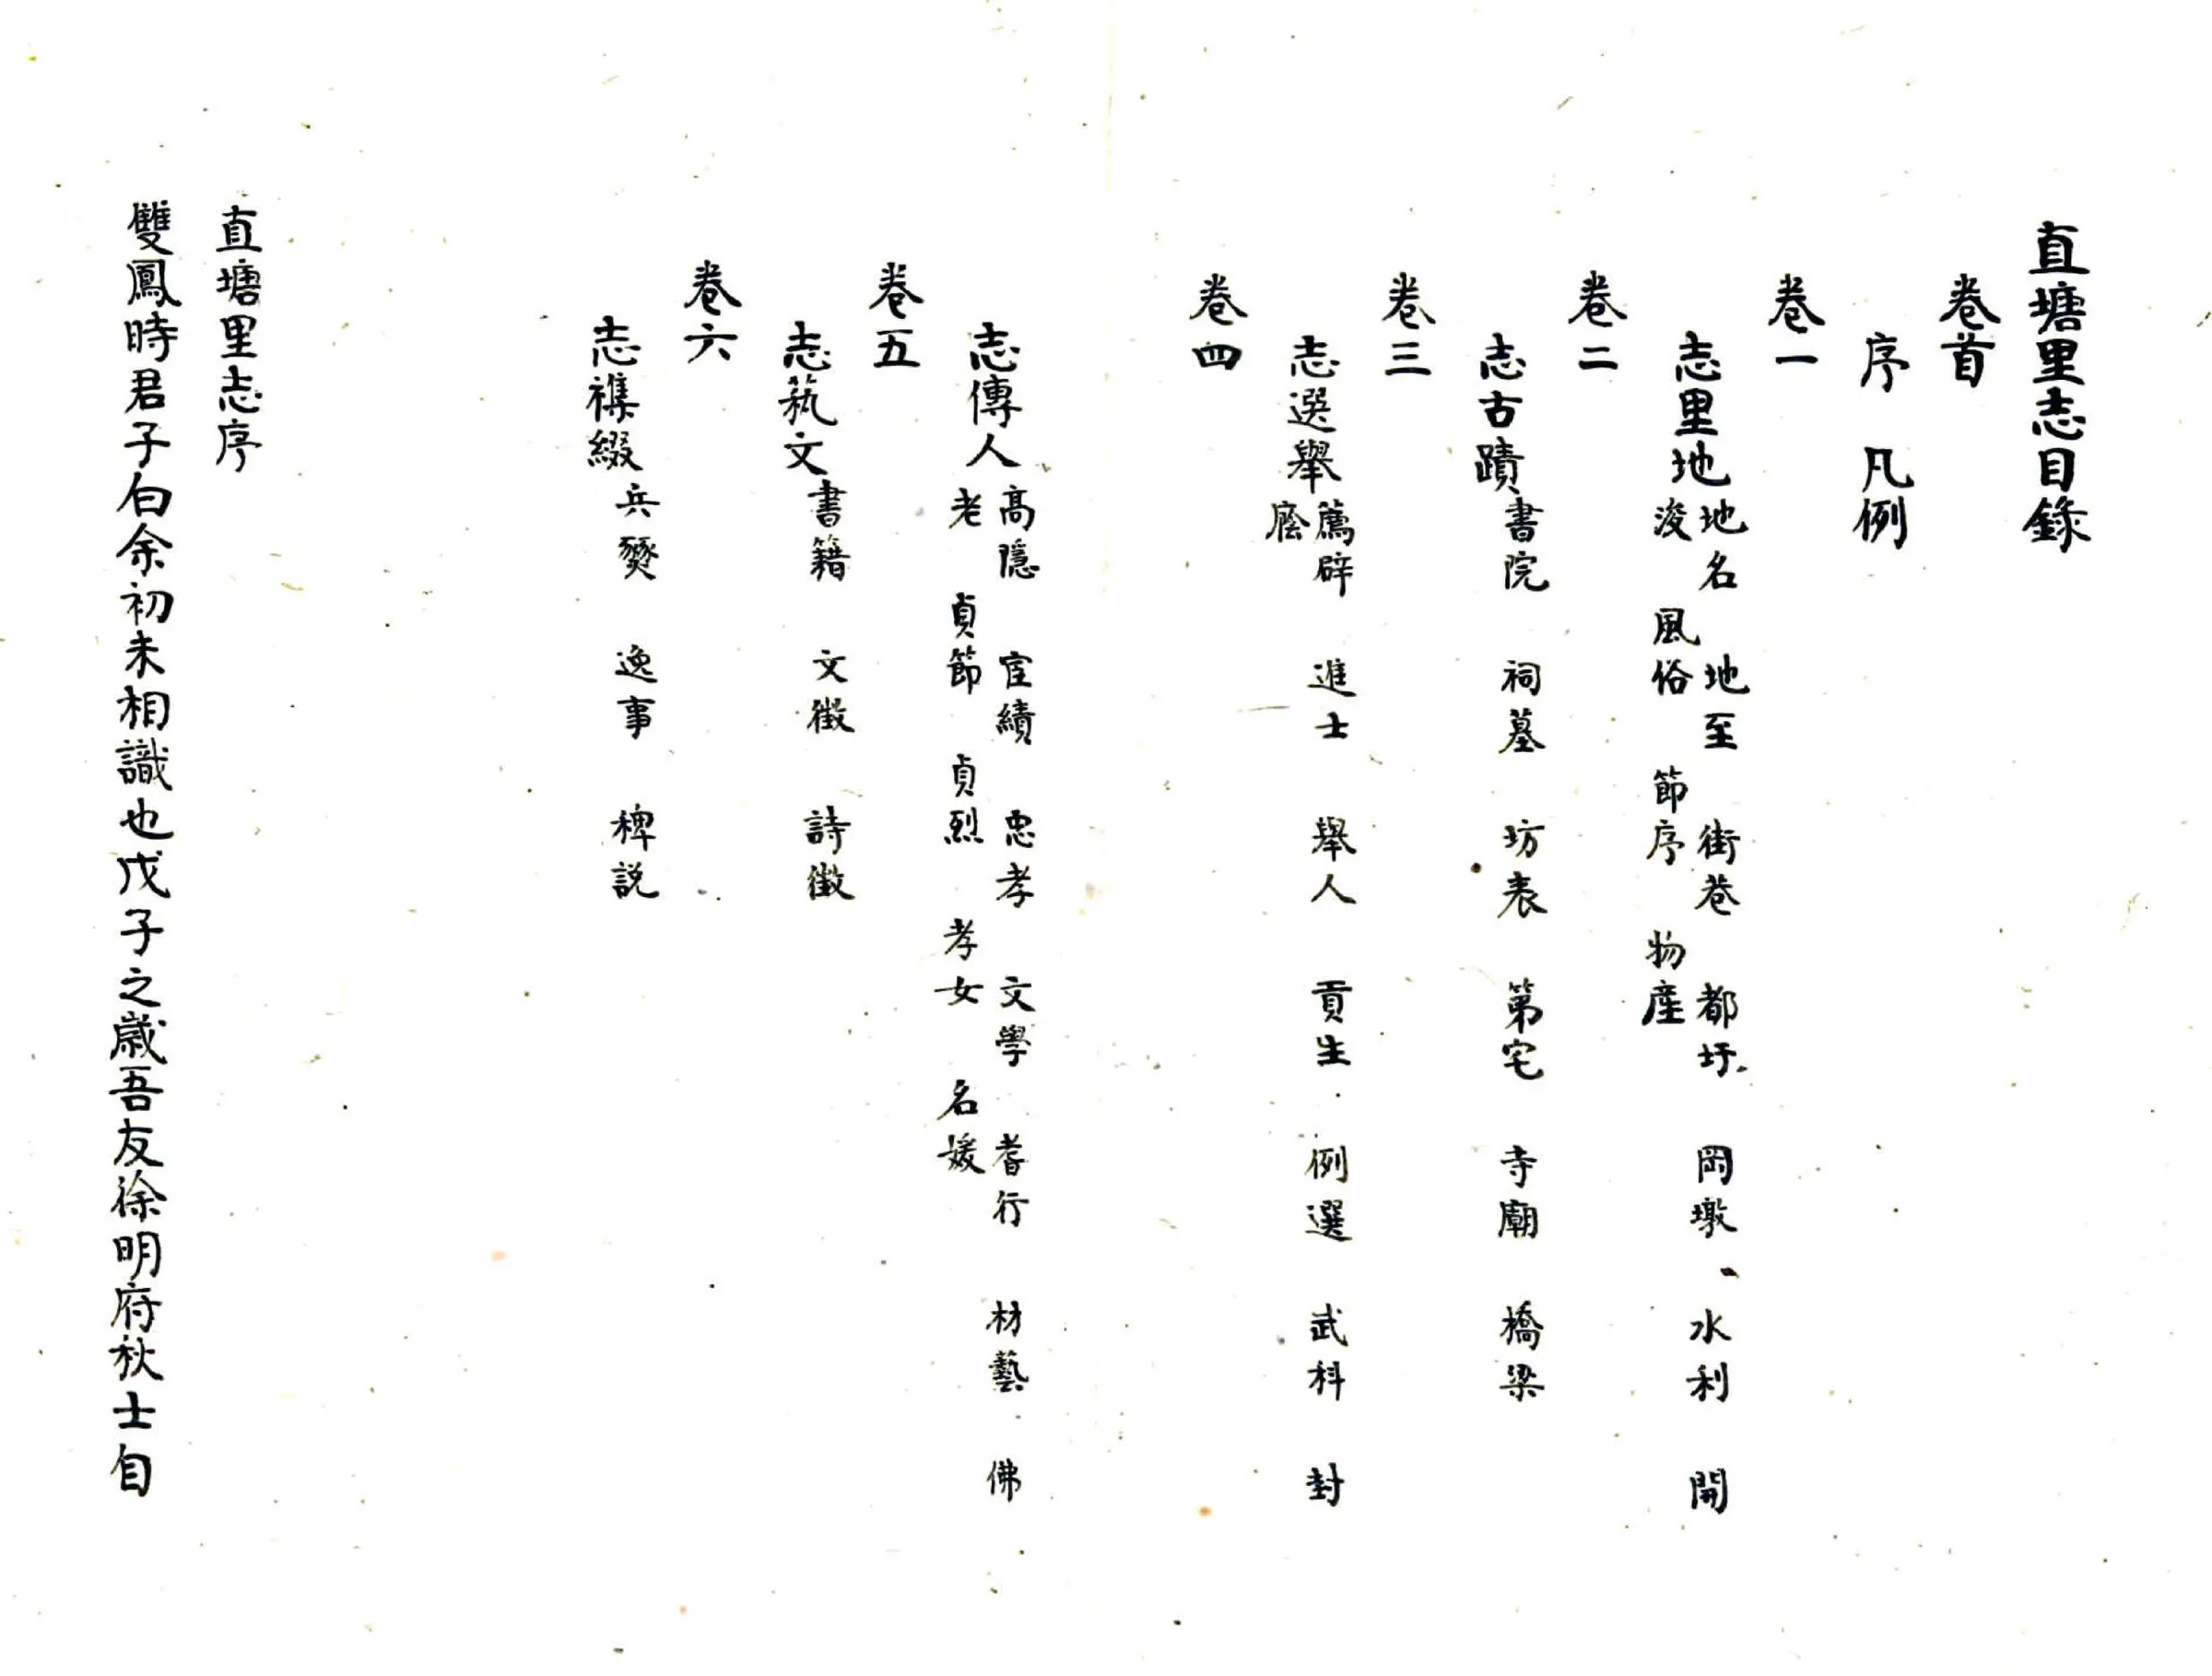 直塘里志目錄
卷首
序　凡例
卷一
志里地　地名　地至　街巷　都圩　岡墩、水利　開
浚　風俗　節序　物產
卷二
志古蹟　書院　祠墓　坊表　第宅　寺廟　橋梁
卷三
志選舉　薦辟　進士　舉人　貢生　例選　武科　封
廕
卷四
志傳人　高隱　宦績　忠孝　文學　耆行　材藝　佛
老　貞節　貞烈　孝女　名媛
卷五
志蓺文　書籍　文徵　詩徵
卷六
志襍綴　兵燹　逸事　稗説
直塘里志序
雙鳳時君子白余初未相識也戊子之歲吾友徐明府秋士自